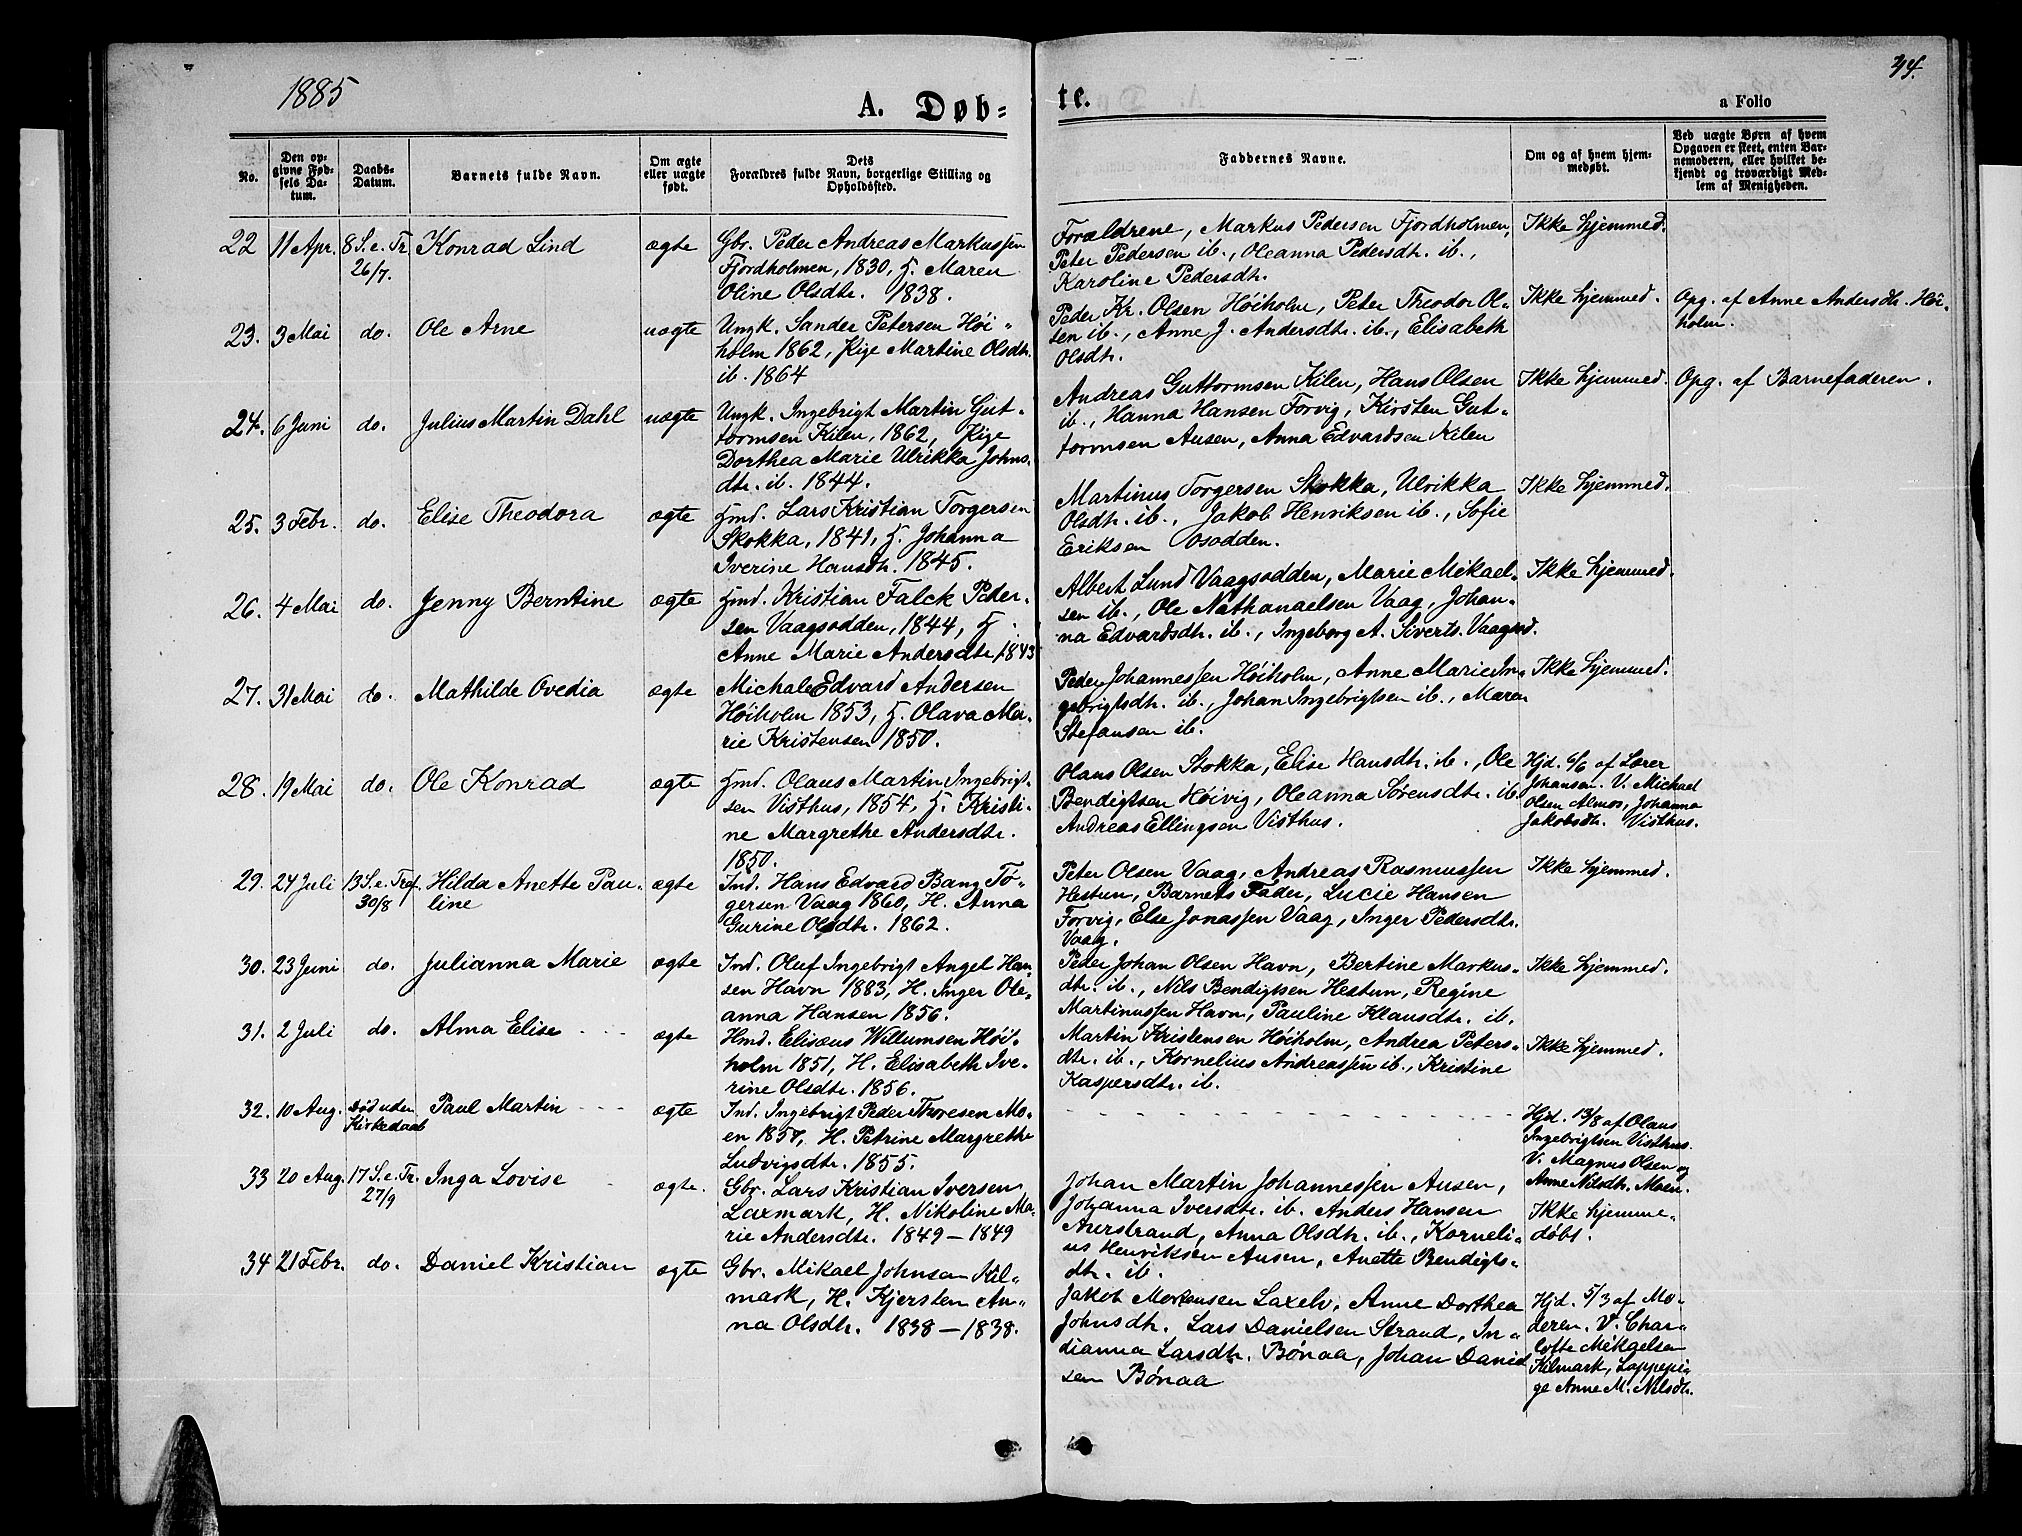 1885
A. Døb-
te.
44.
a Folio
No.
Den op-
givne Fød-
sels Da-
tum.
Daabs-
Datum.
Barnets fulde Navn.
Om ægte
eller uægte
født.
Dets
Forældres fulde Navn, borgerlige Stilling og
Opholdssted.
Faddernes Navne.
Om og af hvem hjem-
medøbt.
Ved uægte Børn af hvem
Opgaven er skeet, enten Bar-
nemoderen, eller hvilket be-
kjendt og troværdigt Med-
lem af Menigheden.
22 11 Apr. 8 S. e. Tr. Konrad Lind ægte
26/7.
Gbr. Peder Andreas Markussen
Fjordholmen, 1830, H. Maren
Oline Olsdtr. 1838.
Forældrene, Markus Pedersen Fjordholmen,
Peter Pedersen ib., Oleanna Pedersdtr. ib.,
Karoline Pedersdtr.
Ikke hjemmed.
23. 3 Mai do. Ole Arne uægte
Ungk. Sander Petersen Høi-
holm 1862, Pige Martine Olsdtr.
ib. 1864
Peder Kr. Olsen Høiholm, Peter Theodor Ol-
sen ib., Anne J. Andersdtr. ib., Elisabeth
Olsdtr.
Ikke hjemmed.
Opg. af Anne Andersdtr. Høi-
holm.
24. 6 Juni do. Julius Martin Dahl uægte
Ungk. Ingebrigt Martin Gut-
tormsen Kilen, 1862, Pige
Dorthea Marie Ulrikka Johns-
dtr. ib. 1844.
Andreas Guttormsen Kilen, Hans Olsen
ib., Hanna Hansen Forvig, Kirsten Gut-
tormsen Ausen, Anna Edvardsen Kilen
Ikke hjemmed.
Opg. af Barnefaderen.
25. 3 Febr. do. Elise Theodora ægte
Hmd. Lars Kristian Torgersen
Skokka, 1841, H. Johanna
Iverine Hansdtr. 1845.
Martinus Torgersen Skokka, Ulrikka
Olsdtr. ib., Jakob Henriksen ib., Sofie
Eriksen Osodden.
Ikke hjemmed.
26. 4 Mai do. Jenny Berntine ægte
Hmd. Kristian Falck Peder-
sen Vaagsodden, 1844, H.
Anne Marie Andersdtr. 1843
Albert Lund Vaagsodden, Marie Mikael-
sen ib., Ole Nathanaelsen Vaag, Johan-
na Edvardsdtr. ib., Ingeborg A. Siverts. Vaagsod.
Ikke hjemmed.
27. 31 Mai do. Mathilde Ovedia ægte
Michale Edvard Andersen
Høiholm 1853, H. Olava Ma-
rie Kristensen 1850.
Peder Johannessen Høiholm, Anne Marie In-
gebrigtsdtr. ib., Johan Ingebrigtsen ib., Maren
Stefansen ib.
Ikke hjemmed.
28. 19 Mai do. Ole Konrad ægte
Hmd. Olaus Martin Ingebrigt-
sen Visthus, 1854, H. Kristi-
ne Margrethe Andersdtr.
1850.
Olaus Olsen Stokka, Elise Hansdtr. ib., Ole
Bendigtsen Høivig, Oleanna Sørensdtr. ib.
Andreas Ellingsen Visthus.
Hjd. 6/6 af Lærer
Johansen. V. Michael
Olsen Almos, Johanna
Jakobsdtr. Visthus.
29. 24 Juli 13 S. e. Tref. Hilda Anette Pau- ægte
30/8 line
Ind. Hans Edvard Bang To-
gersen Vaag 1860, H. Anna
Gurine Olsdtr. 1862.
Peter Olsen Vaag, Andreas Rasmussen
Hestun, Barnets Fader, Lucie Hansen
Forvig, Else Jonassen Vaag, Inger Pedersdtr.
Vaag.
Ikke hjemmed.
30. 23 Juni do. Julianna Marie ægte
Ind. Oluf Ingebrigt Angel Han-
sen Havn 1883, H. Inger Ole-
anna Hansen 1856.
Peder Johan Olsen Havn, Bertine Markus-
dtr. ib., Nils Bendigtsen Hestun, Regine
Martinussen Havn, Pauline Klausdtr. ib.
Ikke hjemmed.
31. 2 Juli do. Alma Elise ægte
Hmd. Elisæus Willumsen Høi-
holm 1851, H. Elisabeth Ive-
rine Olsdtr. 1856.
Martin Kristensen Høiholm, Andrea Peters-
dtr. ib., Kornelius Andreassen ib., Kristine
Kaspersdtr. ib.
Ikke hjemmed.
32. 10 Aug. Død uden Paul Martin ægte
Kirkedaab
Ind. Ingebrigt Peder Thoresen Mo-
en 1857, H. Petrine Margrethe
Ludvigsdtr. 1855.
Hjd. 13/8 af Olaus
Ingebrigtsen Visthus.
V. Magnus Olsen og
Anne Nilsdtr. Moen.
33 20 Aug. 17 S. e. Tr. Inga Lovise ægte.
27/9
Gbr. Lars Kristian Iversen
Laxmark, H. Nikoline Ma-
rie Andersdtr. 1849-1849
Johan Martin Johannessen Ausen,
Johanna Iversdtr. ib. Anders Hansen
Aurstrand, Anna Olsdtr. ib., Korneli-
us Henriksen Ausen, Anette Bendigts-
dtr. ib.
Ikke hjemme-
døbt.
34 21 Febr. do. Daniel Kristian ægte
Gbr. Mikael Johnsen Kil-
mark, H. Kjersten An-
na Olsdtr. 1838-1838.
Jakob Mortensen Laxelv, Anne Dorthea
Johnsdtr. Lars Danielsen Strand, In-
dianna Larsdtr. Bønaa, Johan Daniel
sen Bønaa
Hjd. 5/3 af Mo-
deren. V. Char-
lotte Mikaelsen
Kilmark, Lappepi-
ge Anne M. Nilsdtr.